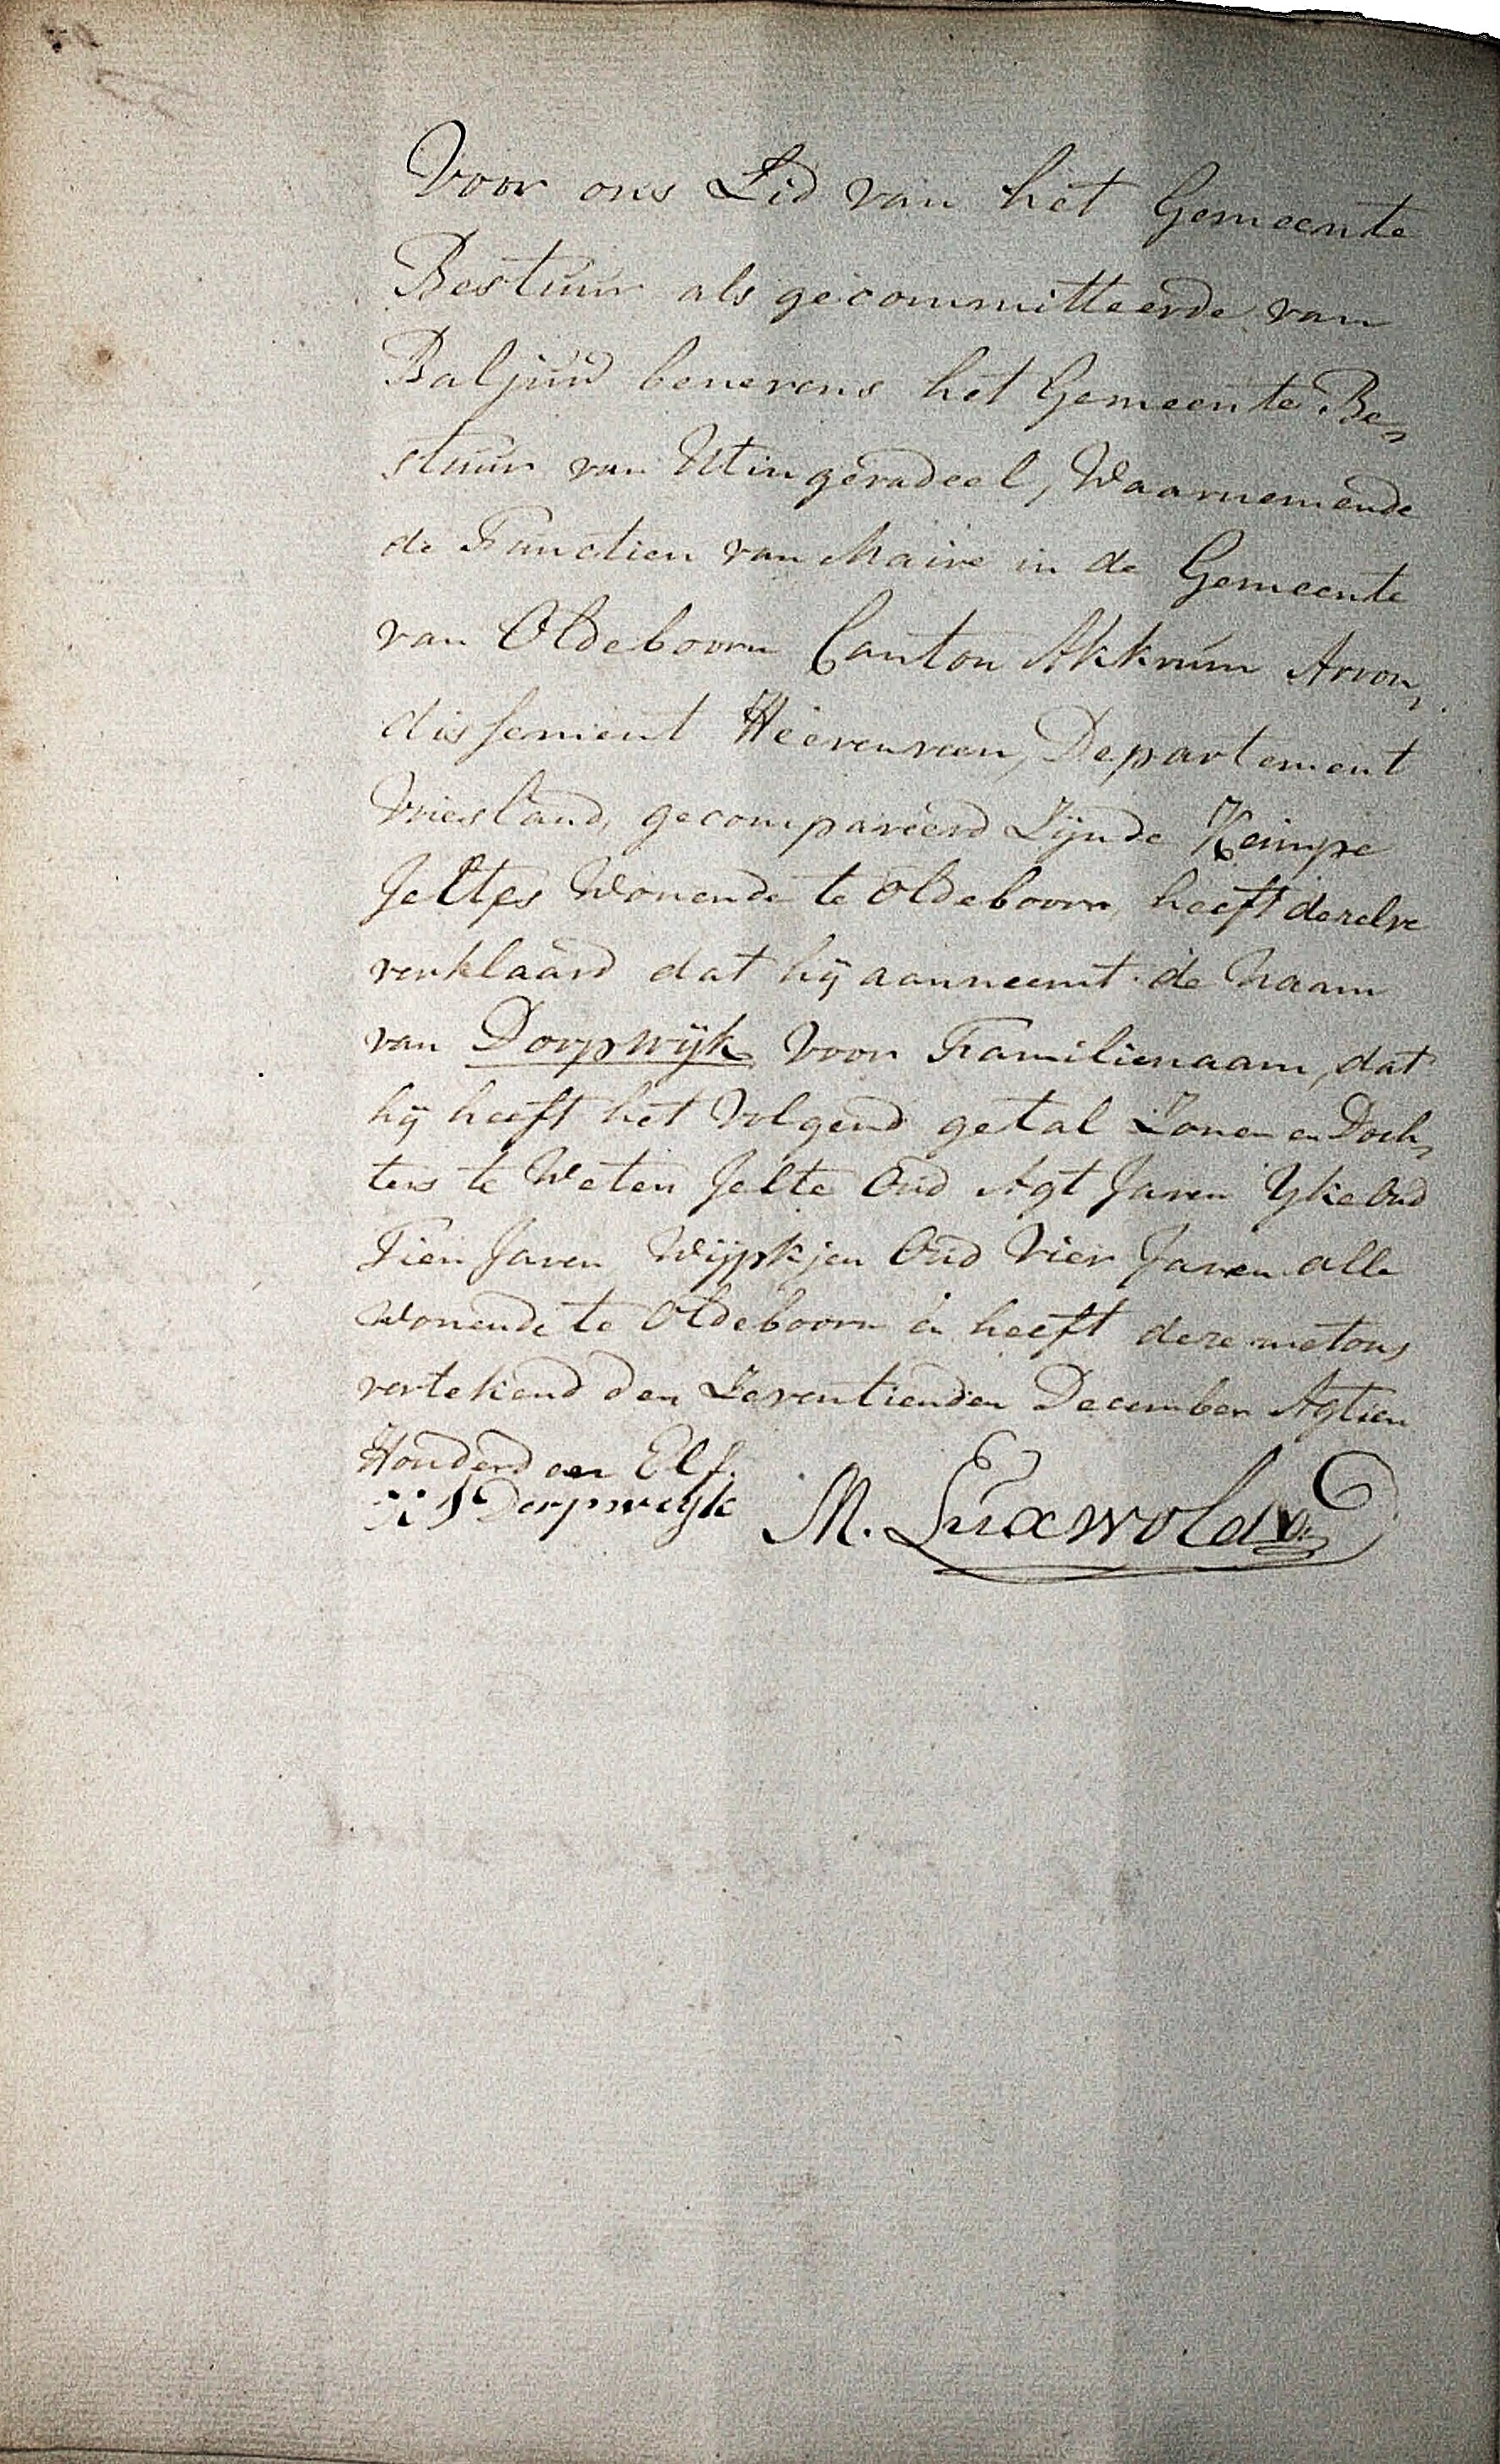 Voor ons Lid van het Gemeente
Bestuur als gecommitteerde van
Baljuw benevens het Gemeente Be„
stuur van Utingeradeel, Waarnemende
de Functien van Maire in de Gemeente
van Oldeboorn Canton Akkrum Arron„
dissement Heerenveen, Departement
Vriesland, gecompareerd Zijnde Keimpe
Jeltes Wonende te Oldeboorn, heeft dezelve
verklaard dat hij aanneemt de Naam
van Dorpwijk Voor Familienaam, dat
hij heeft het Volgend getal Zonen en Doch„
ters te Weten Jelte Oud Agt Jaren Yke Oud
Tien Jaren Wijpkjen Oud Vier Jaren alle
Wonende te Oldeboorn en heeft deze met ons
vertekend den Zeventienden December Agtien
Honderd en Elf.
Dorpweijk M. Luxwolda